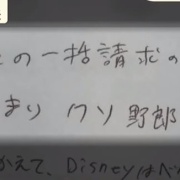 この一括請求の
まり クソ野郎
かえて、Disneyはべ